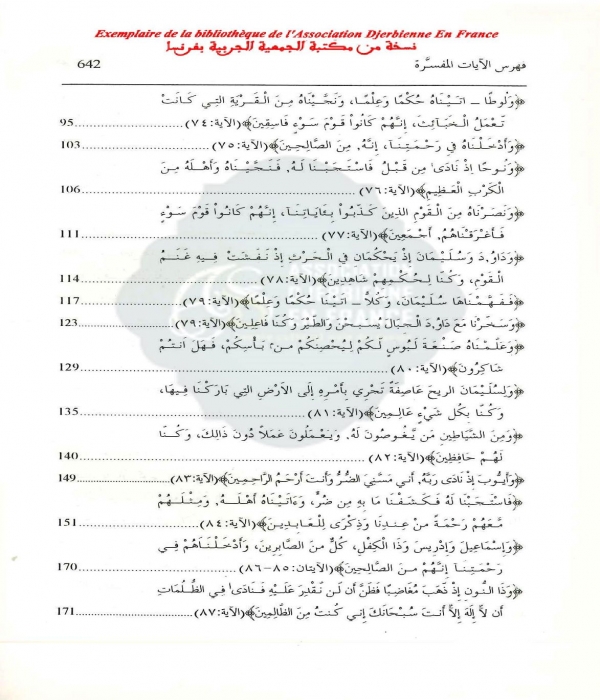 Exemplaire de la bibliothèque de l'Association Djerbienne En France
نسخة من مكتبة الجمعية الجربية بفرنسا
فهرس الآيات المفسَّرة 642
﴿وَلُوطًا ــ اتَيْنَاهُ حُكْمًا وَعِلْمًا، وَنَجَّيْنَاهُ مِنَ الْقَرْيَةِ التِي كَانَتْ
تَعْمَلُ الْخَبَآئِثَ، إِنَّهُمْ كَانُواْ قَوْمَ سَوْءٍ فَاسِقِينَ﴾(الآية:٧٤)......95
﴿وَأَدْخَلْنَاهُ فِي رَحْمَتِنَآ، إِنَّهُ, مِنَ الصَّالِحِينَ﴾(الآية:٧٥)......103
﴿وَنُوحًا إِذْ نَادَىٰ مِن قَبْلُ فَاسْتَجَبْنَا لَهُ, فَنَجَّيْنَاهُ وَأَهْلَهُ مِنَ
الْكَرْبِ الْعَظِيمِ﴾(الآية:٧٦)......106
﴿وَنَصَرْنَاهُ مِنَ الْقَوْمِ الذِينَ كَذَّبُواْ بِئَايَاتِنَآ، إِنَّهُمْ كَانُواْ قَوْمَ سَوْءٍ
فَأَغْرَقْنَاهُمُ, أَجْمَعِينَ﴾(الآية:٧٧)......111
﴿وَدَاوُ,دَ وَسُلَيْمَانَ إِذْ يَحْكُمَانِ فِي الْحَرْثِ إِذْ نَفَشَتْ فِيهِ غَنَمُ
الْقَوْمِ، وَكُنَّا لِحُكْمِهِمْ شَاهِدِينَ﴾(الآية:٧٨)......114
﴿فَفَهَّمْنَاهَا سُلَيْمَانَ، وَكُلاًّ ــ اتَيْنَا حُكْمًا وَعِلْمًا﴾(الآية:٧٩)......117
﴿وَسَخَّرْنَا مَعَ دَاوُ,دَ الْجِبَالَ يُسَبِّحْنَ وَالطَّيْرَ وَكُنَّا فَاعِلِينَ﴾(الآية:٧٩)......123
﴿وَعَلَّمْنَاهُ صَنْعَةَ لَبُوسٍ لَّكُمْ لِيُحْصِنَكُم مِنۢ بَأْسِكُمْ، فَهَلَ اَنتُمْ
شَاكِرُونَ﴾(الآية:٨٠)......129
﴿وَلِسُلَيْمَانَ الرِّيحَ عَاصِفَةً تَجْرِي بِأَمْرِهِ إِلَى الأَرْضِ التِي بَارَكْنَا فِيهَا،
وَكُنَّا بِكُلِّ شَيْءٍ عَالِمِينَ﴾(الآية:٨١)......135
﴿وَمِنَ الشَّيَاطِينِ مَنْ يَّغُوصُونَ لَهُ, وَيَعْمَلُونَ عَمَلاً دُونَ ذَالِكَ، وَكُنَّا
لَهُمْ حَافِظِينَ﴾(الآية:٨٢)......140
﴿وَأَيُّوبَ إِذْ نَادَى رَبَّهُ, أَنِّي مَسَّنِيَ الضُّرُّ وَأَنتَ أَرْحَمُ الرَّاحِمِينَ﴾(الآية:٨٣)......149
﴿فَاسْتَجَبْنَا لَهُ فَكَشَفْنَا مَا بِهِ مِن ضُرٍّ، وَءَاتَيْنَاهُ أَهْلَهُ, وَمِثْلَهُم
مَّعَهُمْ رَحْمَةً مِّنْ عِندِنَا وَذِكْرَى لِلْعَابِدِينَ﴾(الآية:٨٤)......151
﴿وَإِسْمَاعِيلَ وَإِدْرِيسَ وَذَا الْكِفْلِ، كُلٌّ مِّنَ الصَّابِرِينَ، وَأَدْخَلْنَاهُمْ فِي
رَحْمَتِنَآ إِنَّهُم مِّنَ الصَّالِحِينَ﴾(الآيتان:٨٥-٨٦)......170
﴿وَذَا النُّونِ إِذ ذَّهَبَ مُغَاضِبًا فَظَنَّ أَن لَّن نَّقْدِرَ عَلَيْهِ فَنَادَىٰ فِي الظُّلُمَاتِ
أَن لاَّ إِلَهَ إِلاَّ أَنتَ سُبْحَانَكَ إِنِّي كُنتُ مِنَ الظَّالِمِينَ﴾(الآية:٨٧)......171